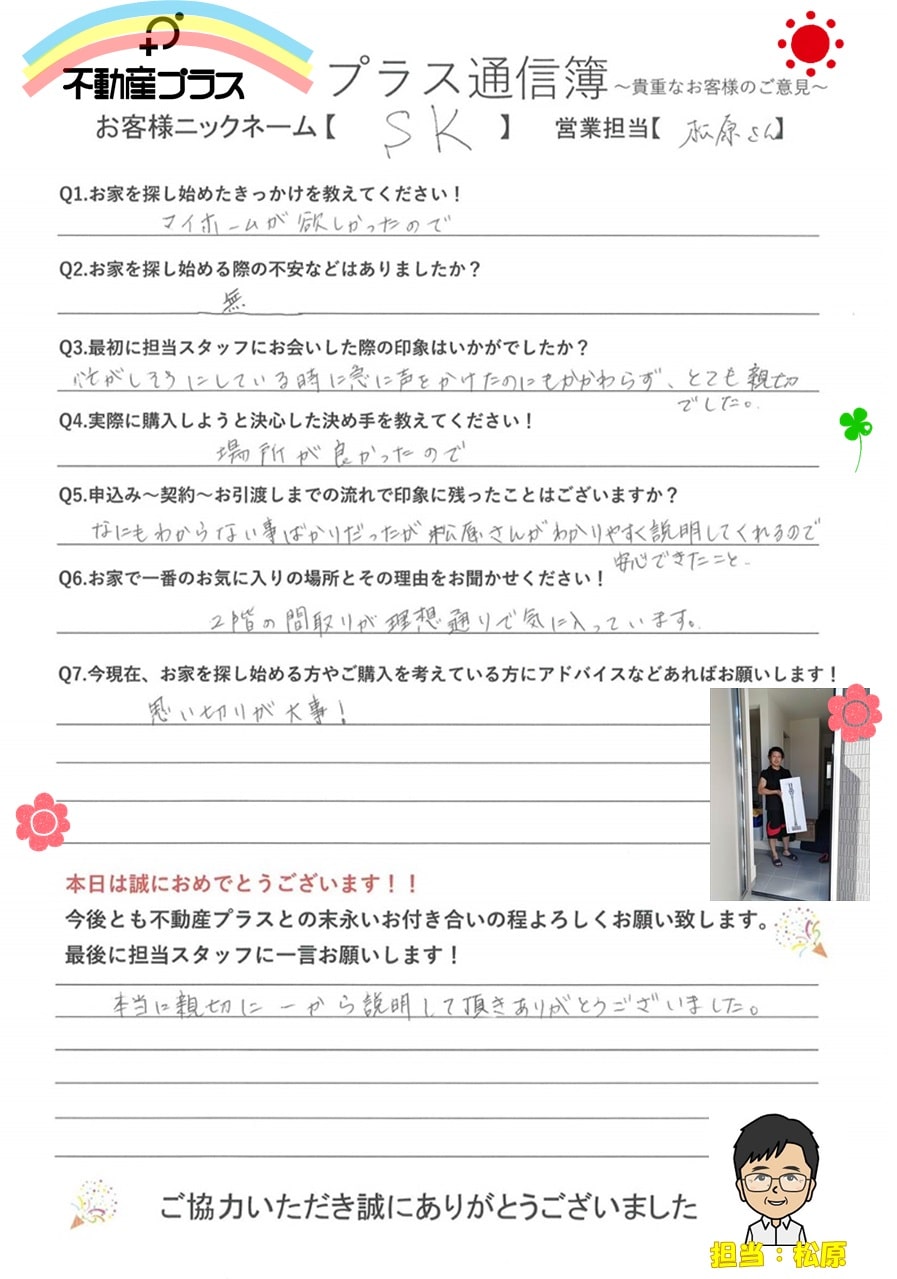 不動産プラス
プラス通信簿 ～貴重なお客様のご意見～
お客様ニックネーム【 SK 】 営業担当【 松原さん】
Q1.お家を探し始めたきっかけを教えてください！
マイホームが欲しかったので
Q2.お家を探し始める際の不安などはありましたか？
無
Q3.最初に担当スタッフにお会いした際の印象はいかがでしたか？
忙がしそうにしている時に急に声をかけたのにもかかわらず、とても親切
でした。
Q4.実際に購入しようと決心した決め手を教えてください！
場所が良かったので
Q5.申込み～契約～お引渡しまでの流れで印象に残ったことはございますか？
なにもわからない事ばかりだったが松原さんがわかりやすく説明してくれるので
安心できたこと。
Q6.お家で一番のお気に入りの場所とその理由をお聞かせください！
2階の間取りが理想通りで気に入っています。
Q7.今現在、お家を探し始める方やご購入を考えている方にアドバイスなどあればお願いします！
思い切りが大事！
本日は誠におめでとうございます！！
今後とも不動産プラスとの末永いお付き合いの程よろしくお願い致します。
最後に担当スタッフに一言お願いします！
本当に親切に一から説明して頂きありがとうございました。
ご協力いただき誠にありがとうございました
担当：松原